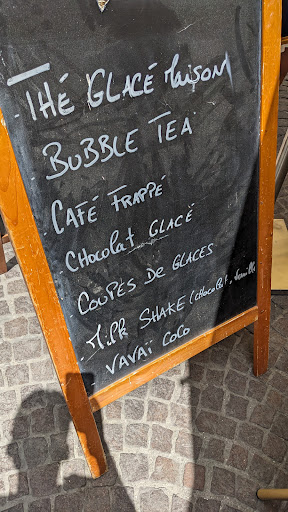 - THÉ GLACÉ Maison
- BUBBLE TEA
- CAFÉ FRAPPÉ
- CHOCOLAT GLACÉ
COUPES De GLACES
- Milk SHAKE (CHOCOLAT, Vanille
- VAVAÏ COCO